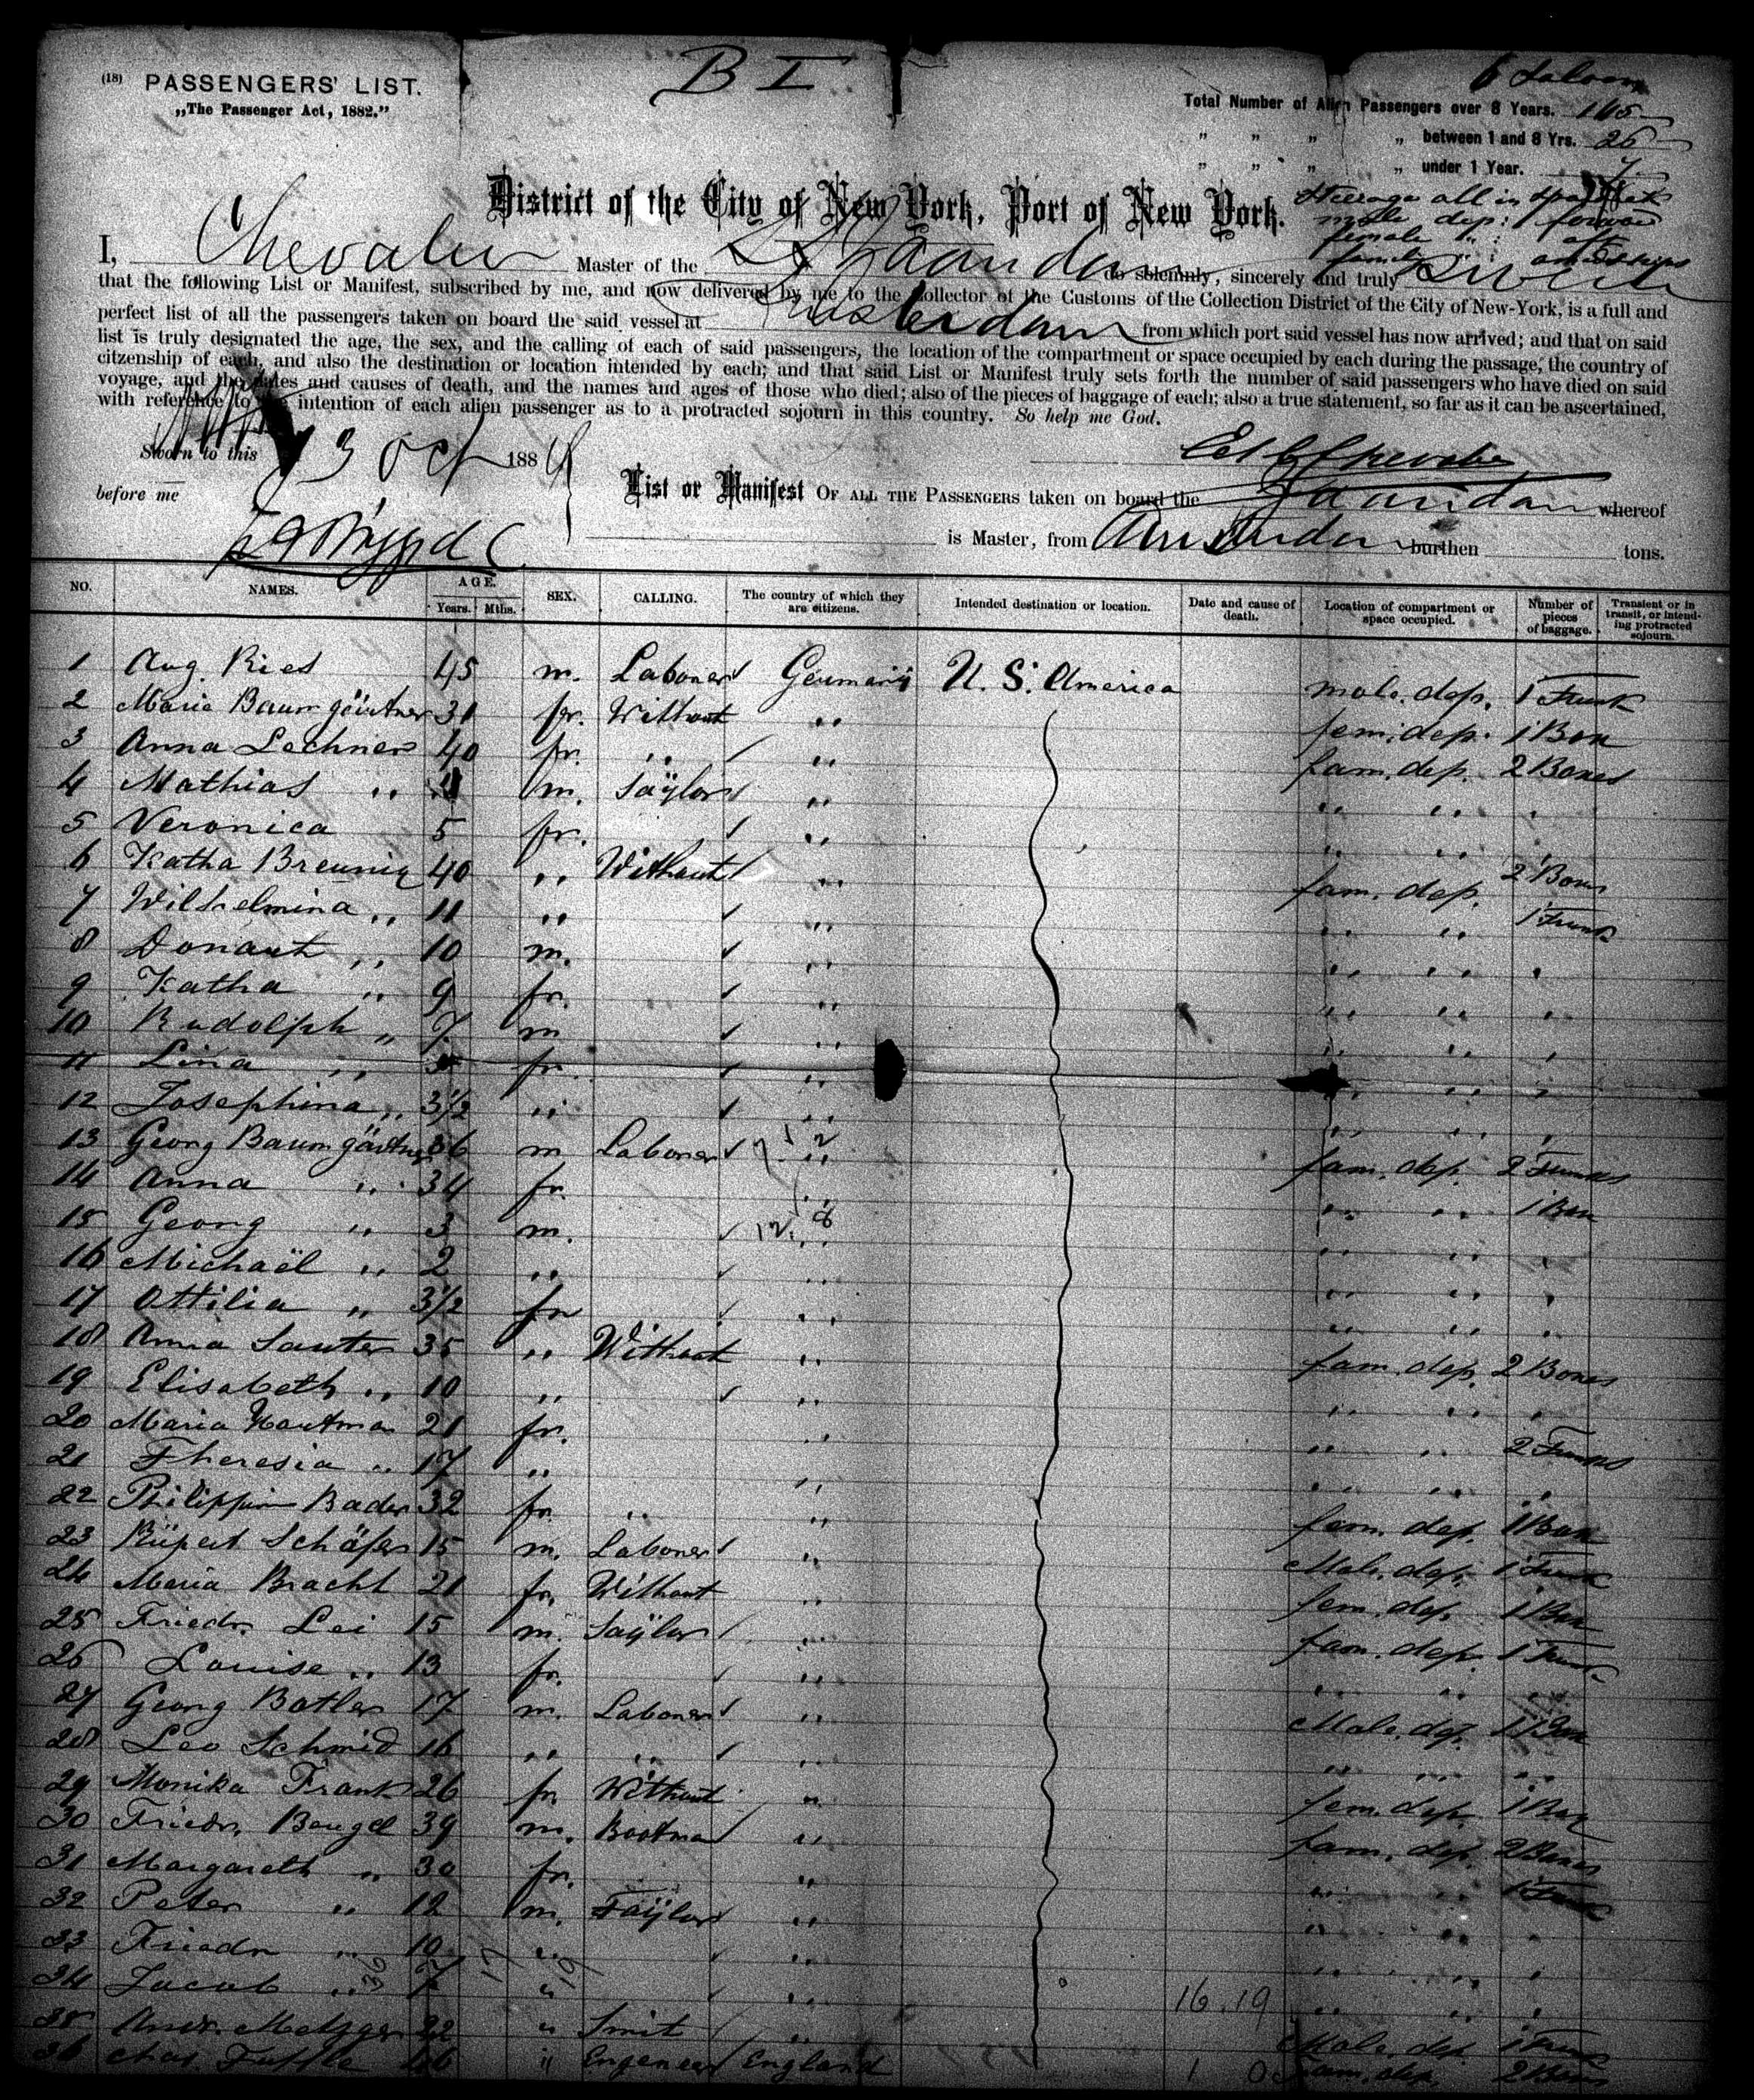 B I
6 Saloon
(18) PASSENGERS' LIST.
„The Passenger Act, 1882."
Total Number of Alien Passengers over 8 Years. 165
„ „ „ „ between 1 and 8 Yrs. 26
„ „ „ „ under 1 Year. 7
Steerage all in
male dep: forward
female „ : aft
family „ : amidships
District of the City of New York, Port of New York.
I, Chevalier Master of the SS Zaandam do solemnly, sincerely and truly Swear
that the following List or Manifest, subscribed by me, and now delivered by me to the Collector of the Customs of the Collection District of the City of New-York, is a full and
perfect list of all the passengers taken on board the said vessel at Amsterdam from which port said vessel has now arrived; and that on said
list is truly designated the age, the sex, and the calling of each of said passengers, the location of the compartment or space occupied by each during the passage, the country of
citzenship of each, and also the destination or location intended by each; and that said List or Manifest truly sets forth the number of said passengers who have died on said
voyage, and the dates and causes of death, and the names and ages of those who died; also of the pieces of baggage of each; also a true statement, so far as it can be ascertained,
with reference to intention of each alien passenger as to a protracted sojourn in this country. So help me God.
Sworn to this 3 Oct 188
before me
List or Manifest OF ALL THE PASSENGERS taken on board the Zaandam whereof
is Master, from Amsterdam burthen tons.
NO. NAMES. AGE. Years. Mths. SEX. CALLING. The country of which they are citizens. Intended destination or location. Date and cause of death. Location of compartment or space occupied. Number of pieces of baggage. Transient or in transit, or intending protracted sojourn.
1 Aug. Ries 45 m. Laborer Germany U. S. America male. dep. 1 Trunk
2 Maria Baumgärtner 31 fr. Without „ fem. dep. 1 Box
3 Anna Lechner 40 fr. „ „ fam. dep. 2 Boxes
4 Mathias „ m. Taÿlor „ „ „ „
5 Veronica 5 fr. „ „ „
6 Katha Breunig 40 „ Without „ fam. dep. 2 Boxes
7 Wilhelmina „ 11 „ „ „ „ 1 Trunk
8 Donart „ 10 m. „ „ „ „
9 Katha „ 9 fr. „ „ „ „
10 Rudolph „ 7 m „ „ „ „
11 Lina „ fr. „ „ „ „
12 Josephina „ 3½ „ „ „ „ „
13 Georg Baumgärtner 36 m Laborer „ fam. dep. 2 Trunks
14 Anna „ 34 fr. „ „ 1 Box
15 Georg „ 3 m. „ „ „ „
16 Michaël „ 2 „ „ „ „ „
17 Ottilia „ 3½ fr „ „ „ „
18 Anna Sauter 35 „ Without „ fam. dep. 2 Boxes
19 Elisabeth „ 10 „ „ „ „ „
20 Maria Hartman 21 fr. „ „ „ 2 Trunks
21 Theresia „ 17 „ „ „ „ „
22 Philippin Bader 32 fr. „ „ fem. dep. 1 Box
23 Rüpert Schäfer 15 m. Laborer „ Male. dep. 1 Trunk
24 Maria Bracht 21 fr. Without „ fem. dep. 1 Box
25 Friedr. Lei 15 m. Taÿlor „ fam. dep. 1 Trunk
26 Louise „ 13 fr. „ „ „ „
27 Georg Botler 17 m. Laborer „ Male. dep. 1 Box
28 Leo Schmid 16 „ „ „ „ „ „
29 Monika Frank 26 fr. Without „ fem. dep. 1 Box
30 Friedr. Bengel 39 m. Bootman „ fam. dep. 2 Boxes
31 Margareth „ 30 fr. „ „ „ 1 Trunk
32 Peter „ 12 m. Taÿlor „ „ „ „
33 Friedr „ 10 „ „ „ „ „
34 Jacob „ 7 „ „ 16.19 „ „ „
35 Andr. Metzger 22 „ Smit „ Male. dep. 1 Trunk
36 Chas. Tuffle 46 „ Engeneer England fam. dep. 2 Boxes